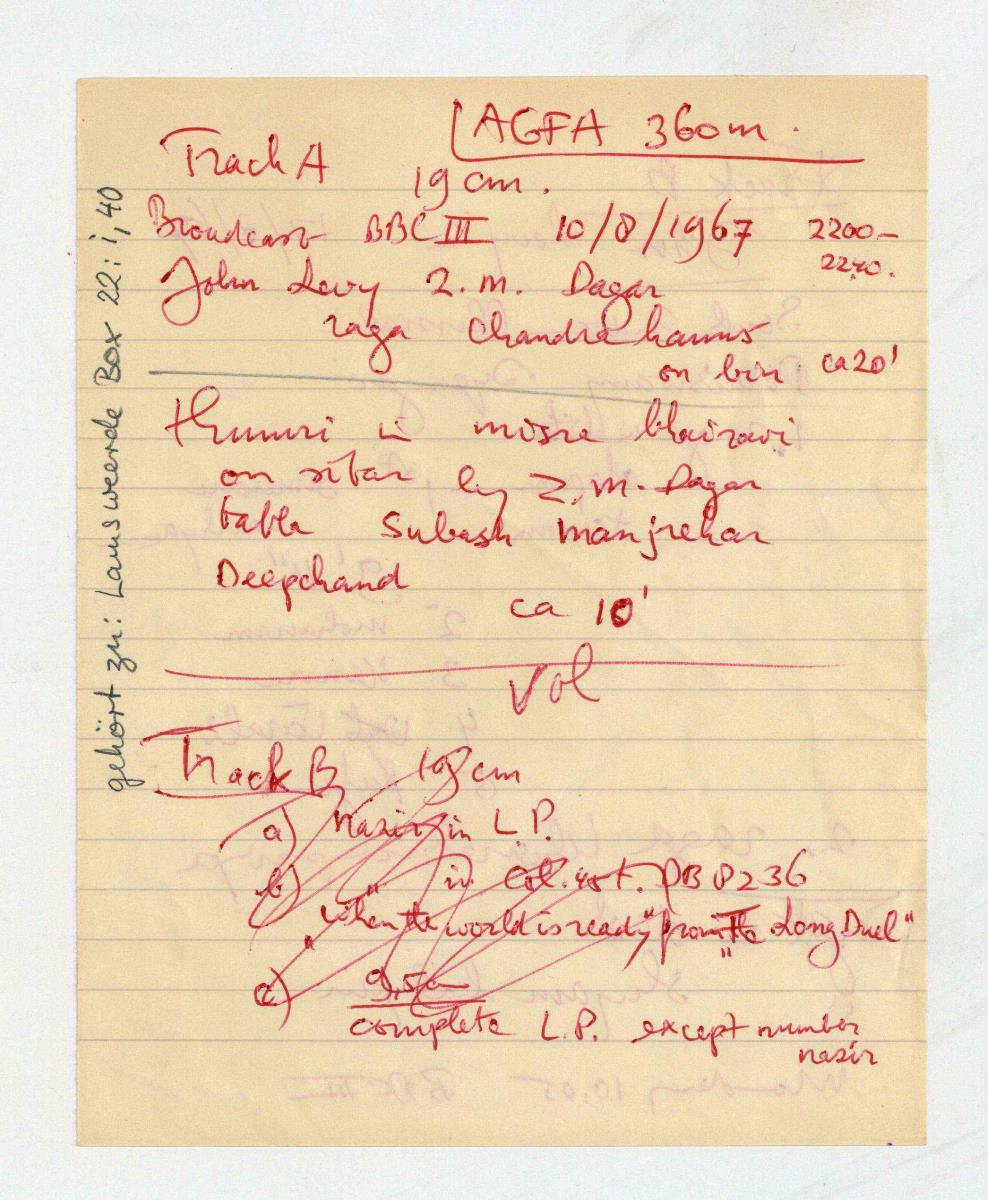 AGFA 360m.
Track A
19 cm.
Broadcast BBC III 10/8/1967 2200-
2240.
John Levy Z.M. Dagar
raga Chandrakauns
on bin ca 20'
thumri in misra bhairavi
on sitar by Z.M. Dagar
tabla Subash Manjrekar
Deepchand
ca 10'
vol
Track B 19 cm
a) Nasir in L.P.
b) " in Col. 45t. DB 8236
"when the world is ready" from "The Long Duel"
c) 9,5 cm
complete L.P. except number
nasir
gehört zu: Lamsweerde Box 22: i, 40